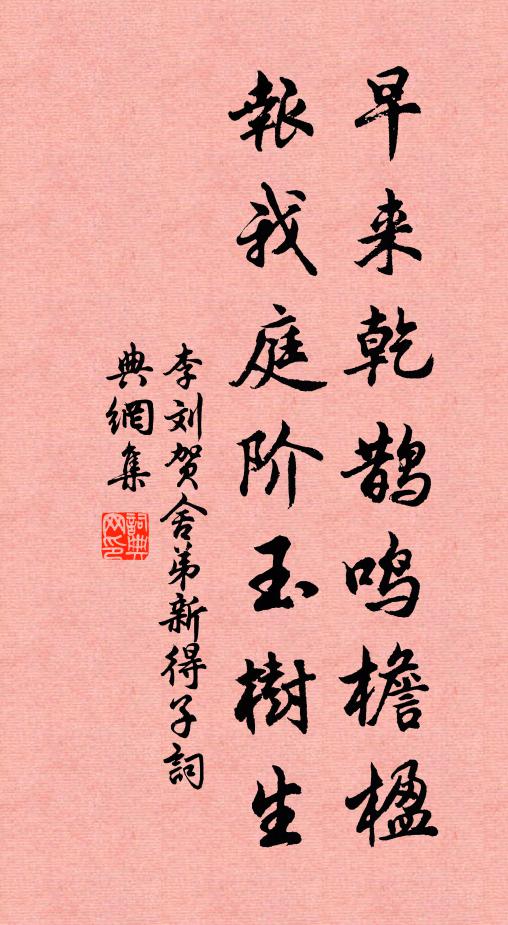 早来乾鹊鸣檐楹
報我庭阶玉樹生
李刘贺舍弟新得子詞
典網集
詞典网印